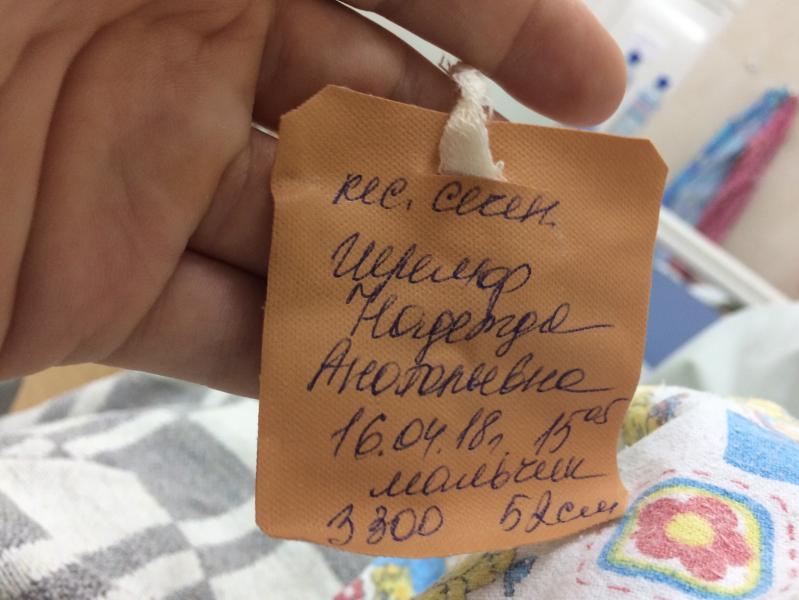 кес. сечен.
Надежда
Анатольевна
16.04.18г. 15 05
мальчик
3300 52 см